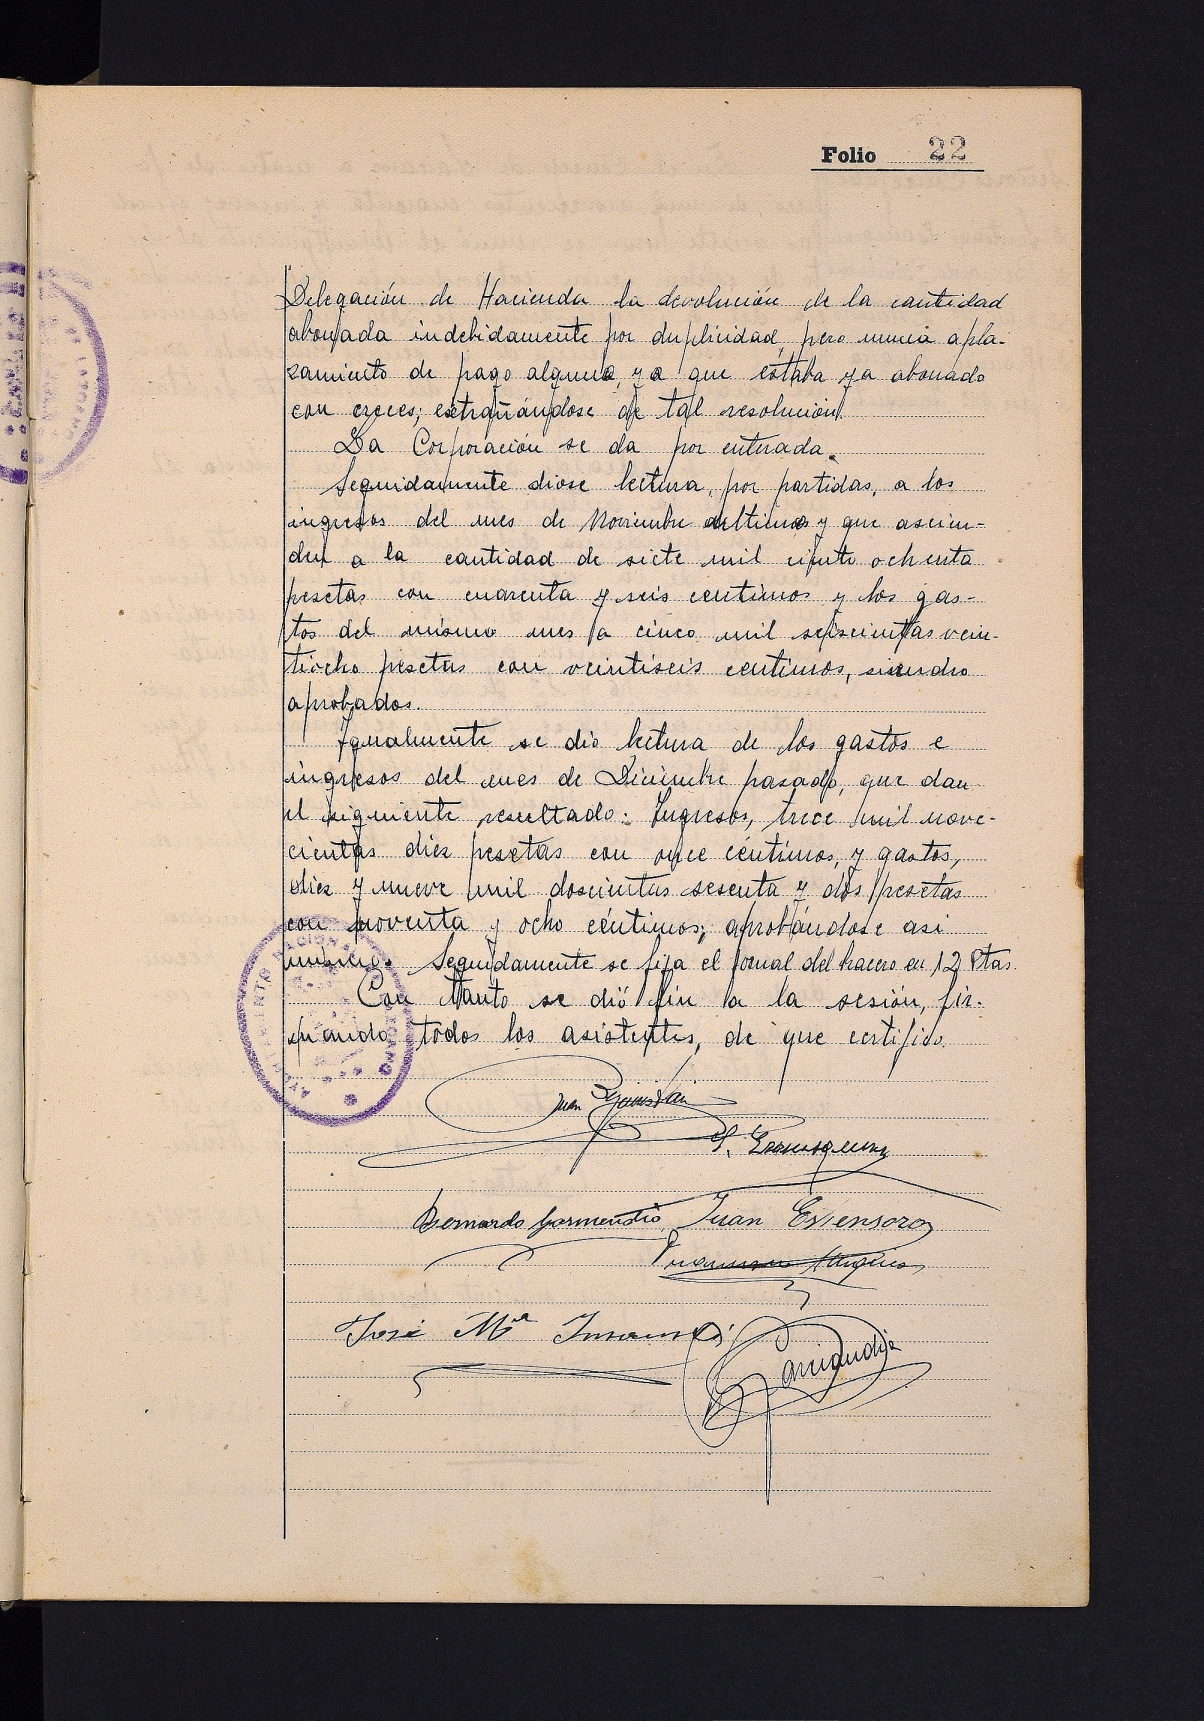 Folio 22
Delegación de Hacienda la devolución de la cantidad
abonada indebidamente por duplicidad, pero nunca apla-
zamiento de pago alguno, ya que estaba ya abonado
con creces; extrañándose de tal resolución.
La Corporación se da por enterada.
Seguidamente diose lectura, por partidas, a los
ingresos del mes de Noviembre último y que ascien-
den a la cantidad de siete mil ciento ochenta
pesetas con cuarenta y seis centimos y los gas-
tos del mismo mes a cinco mil seiscientas vein-
tiocho pesetas con veintiseis centimos, siendo
aprobados.
Igualmente se dio lectura de los gastos e
ingresos del mes de Diciembre pasado, que dan
el siguiente resultado: Ingresos, trece mil nove-
cientas diez pesetas con once céntimos, y gastos,
diez y nueve mil doscientas sesenta y dos pesetas
con noventa y ocho céntimos; aprobándose asi
mismo. Seguidamente se fija el jornal del hacero en 12 Ptas.
Con tanto se dió fin a la sesión, fir-
mando todos los asistentes, de que certifico.
Juan
Bernardo Garmendia Juan Esnensoro
José Mª